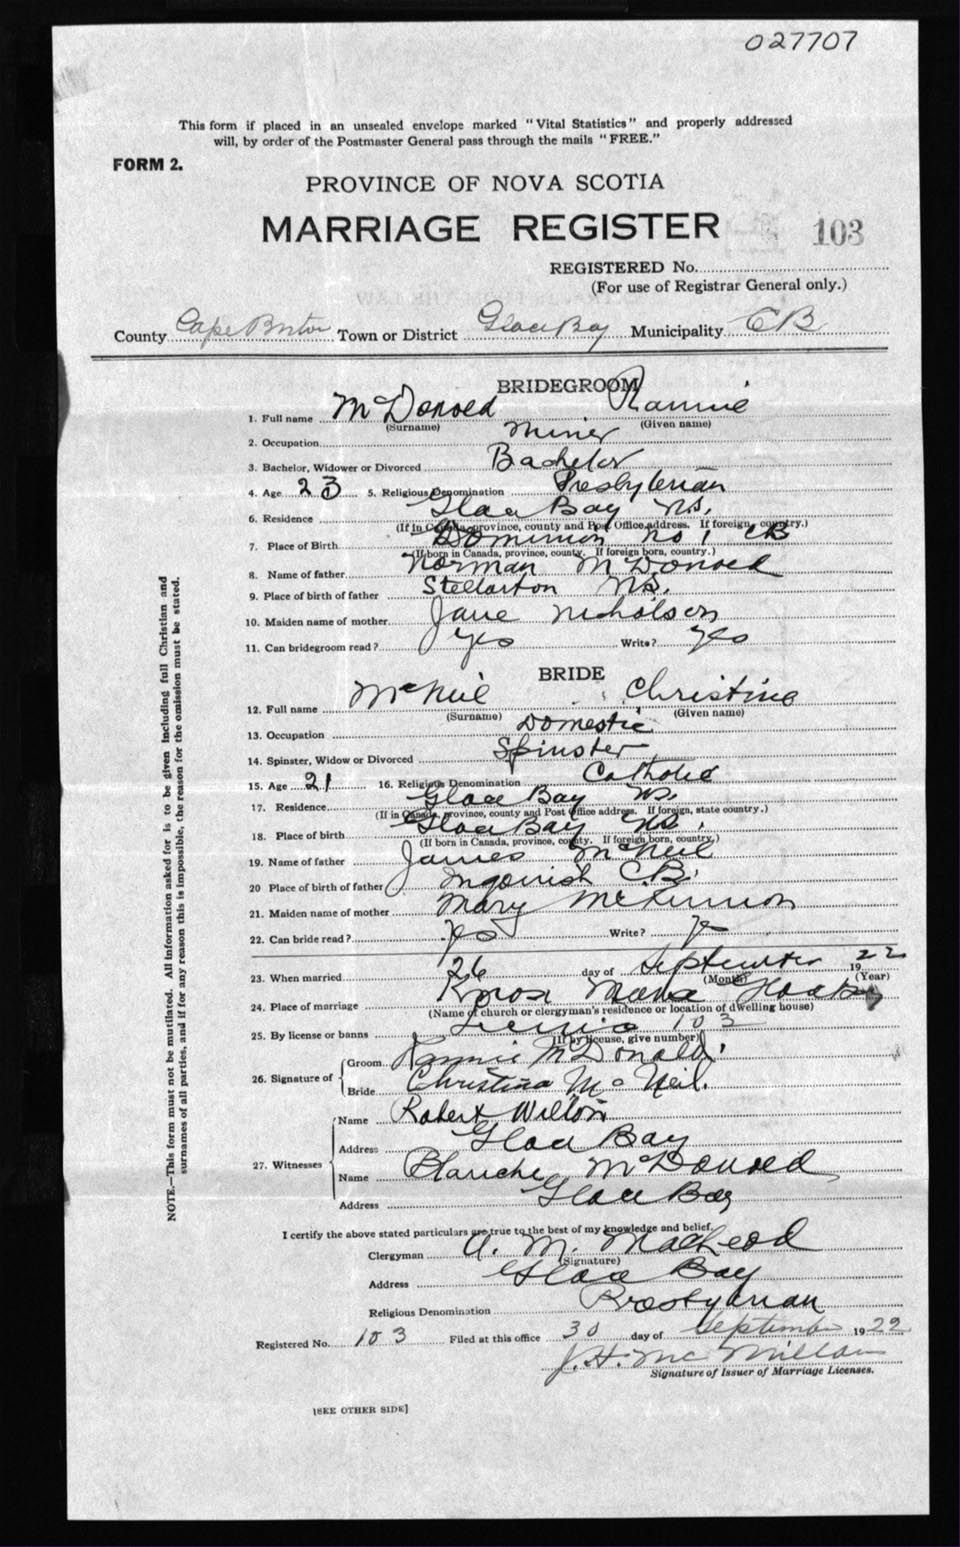 027707
This form if placed in an unsealed envelope marked "Vital Statistics" and properly addressed
will, by order of the Postmaster General pass through the mails "FREE."
FORM 2.
PROVINCE OF NOVA SCOTIA
MARRIAGE REGISTER 103
REGISTERED No.
(For use of Registrar General only.)
County Cape Breton Town or District Glace Bay Municipality CB
BRIDEGROOM
1. Full name McDonald Rannie
(Surname) (Given name)
2. Occupation Miner
3. Bachelor, Widower or Divorced Bachelor
4. Age 23 5. Religious Denomination Presbyterian
6. Residence Glace Bay N.S.
(If in Canada, province, county and Post Office address. If foreign, country.)
7. Place of Birth Dominion No 1 CB
(If born in Canada, province, county. If foreign born, country.)
8. Name of father Norman McDonald
9. Place of birth of father Stellarton N.S.
10. Maiden name of mother Jane Nicholson
11. Can bridegroom read? Yes Write? Yes
BRIDE
12. Full name McNeil Christine
(Surname) (Given name)
13. Occupation Domestic
14. Spinster, Widow or Divorced Spinster
15. Age 21 16. Religious Denomination Catholic
17. Residence Glace Bay N.S.
(If in Canada, province, county and Post Office address. If foreign, state country.)
18. Place of birth Glace Bay N.S.
(If born in Canada, province, county. If foreign born, country.)
19. Name of father James McNeil
20 Place of birth of father Ingonish C.B.
21. Maiden name of mother Mary McKinnon
22. Can bride read? Yes Write? Yes
23. When married 26 day of September 1922
(Month) (Year)
24. Place of marriage Knox Manse Glace Bay
(Name of church or clergyman's residence or location of dwelling house)
25. By license or banns License 103
(If by license, give number)
26. Signature of Groom Rannie McDonald
Bride Christina McNeil.
27. Witnesses Name Robert Wilton
Address Glace Bay
Name Blanche McDonald
Address Glace Bay
I certify the above stated particulars are true to the best of my knowledge and belief.
Clergyman A. M. MacLeod
(Signature)
Address Glace Bay
Religious Denomination Presbyterian
Registered No. 103 Filed at this office 30 day of September 1922
J. H. McMillan
Signature of Issuer of Marriage Licenses.
[SEE OTHER SIDE]
NOTE.—This form must not be mutilated. All information asked for is to be given including full Christian and
surnames of all parties, and if for any reason this is impossible, the reason for the omission must be stated.